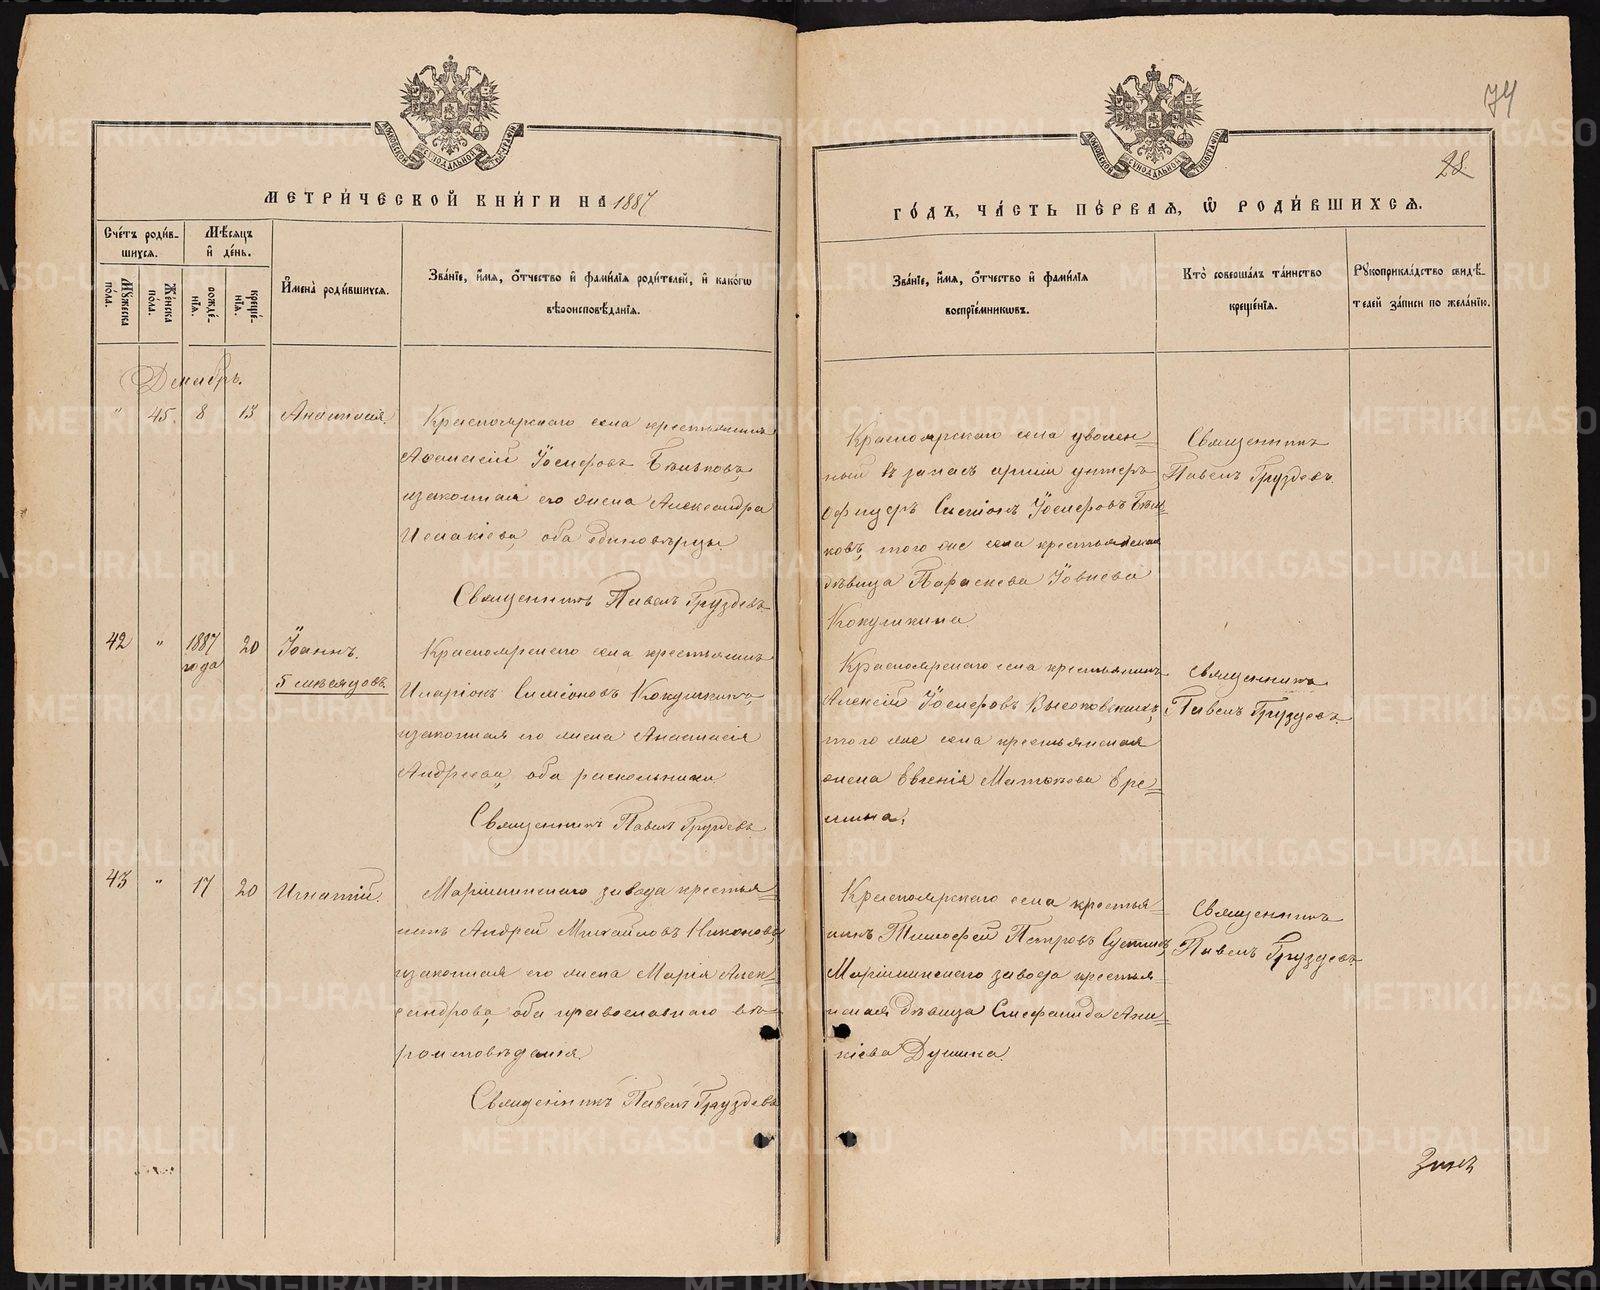 74
22
МЕТРИ́ЧЕСКОЙ КНИ́ГИ НА 1887
ГО́ДЪ, ЧА́СТЬ ПЕ́РВАЯ, Ѡ РОДИ́ВШИХСЯ.
Сче́тъ роди́в-
шихся.
Мѣ́сяцъ
и҆ де́нь.
Му́жеска
по́ла.
Же́нска
по́ла.
рожде́-
нія.
креще́-
нія.
И҆мена̀ роди́вшихся.
Зва́ніе, и҆́мя, ѻ҆́тчество и҆ фами́лія роди́телей, и҆ како́гѡ
вѣроисповѣ́данія.
Зва́ніе, и҆́мя, ѻ҆́тчество и҆ фами́лія
воспріе́мникѡвъ.
Кто̀ соверша́лъ та́инство
креще́нія.
Рꙋкоприкла́дство свидѣ́-
телей за́писи по жела́нію.
Декабрь.
" 45 8 13 Анастасія.
Красноярскаго села крестьянинъ
Аѳанасій Іосифовъ Бѣлковъ,
и законная его жена Александра
Исаакіева, оба единовѣрцы.
Священникъ Павелъ Груздевъ
Красноярскаго села уволен=
ный въ запасъ арміи унтеръ
офицеръ Симеонъ Іосифовъ Бѣл=
ковъ, того же села крестьянская
дѣвица Параскева Іовлева
Кокушкина.
Священникъ
Павелъ Груздевъ.
42 " 1887 года 20 Іоаннъ.
5 мѣсяцовъ.
Красноярскаго села крестьянинъ
Иларіонъ Симеоновъ Кокушкинъ,
и законная его жена Анастасія
Андреева, оба раскольники
Священникъ Павелъ Груздевъ
Красноярскаго села крестьянинъ
Алексій Іосифовъ Высоковскихъ,
того же села крестьянская
жена Евгенія Матѳеева Ере=
мина.
Священникъ
Павелъ Груздевъ.
43 " 17 20 Игнатій.
Маріинскаго завода крестья=
нинъ Андрей Михайловъ Никоновъ,
и законная его жена Марія Алек=
сандрова, оба православнаго вѣ=
роисповѣданія.
Священникъ Павелъ Груздевъ
Красноярскаго села крестья=
нинъ Тимофей Петровъ
Маріинскаго завода крестья=
нская дѣвица Стефанида Ани=
кіева Душина.
Священникъ
Павелъ Груздевъ.
METRIKI.GASO-URAL.RU